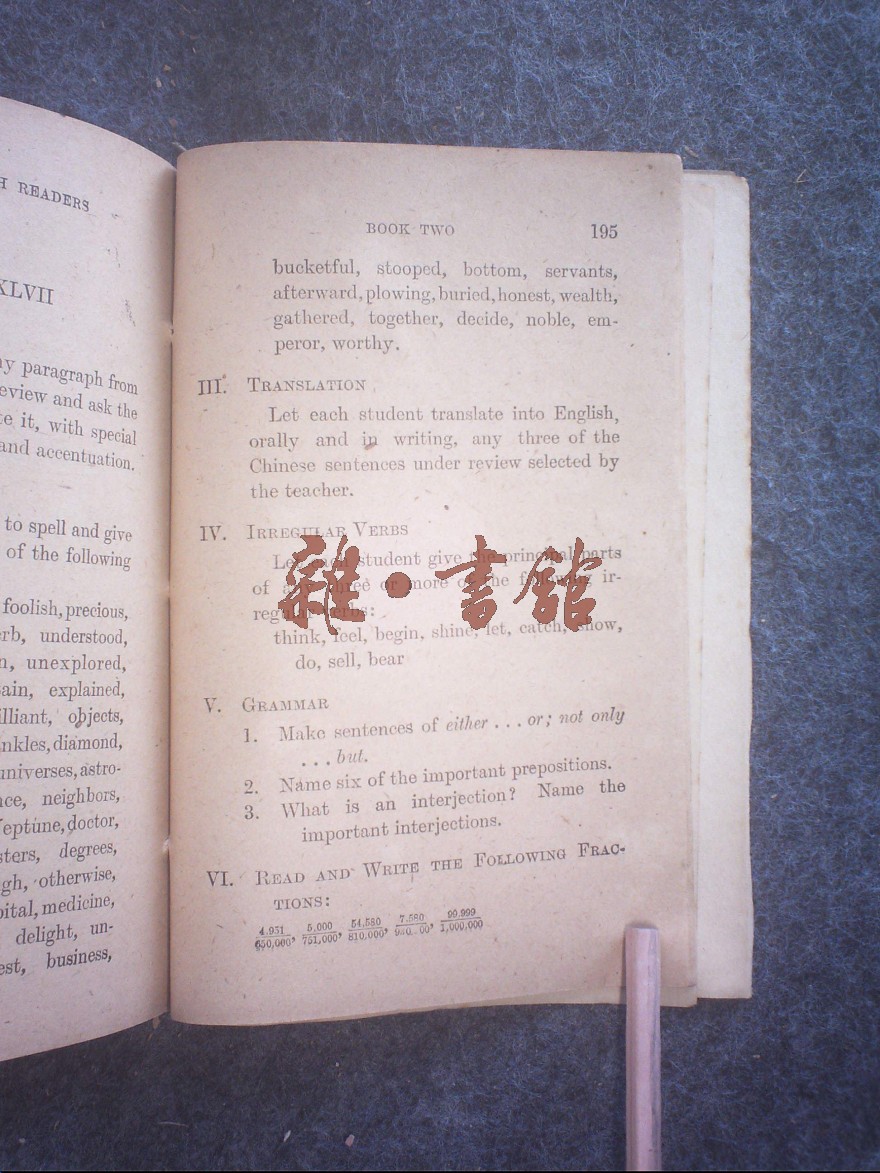 H READERS
XLVII
ny paragraph from
eview and ask the
te it, with special
and accentuation.
to spell and give
of the following
foolish, precious,
erb, understood,
n, unexplored,
ain, explained,
illiant, objects,
nkles, diamond,
universes, astro-
nce, neighbors,
Neptune, doctor,
sters, degrees,
gh, otherwise,
pital, medicine,
delight, un-
est, business,
BOOK TWO 195
bucketful, stooped, bottom, servants,
afterward, plowing, buried, honest, wealth,
gathered, together, decide, noble, em-
peror, worthy.
III. TRANSLATION
Let each student translate into English,
orally and in writing, any three of the
Chinese sentences under review selected by
the teacher.
IV. IRREGULAR VERBS
Let each student give the principal parts
of any three or more of the following ir-
regular verbs:
think, feel, begin, shine, let, catch, show,
do, sell, bear
雜·書館
V. GRAMMAR
1. Make sentences of either . . . or; not only
. . . but.
2. Name six of the important prepositions.
3. What is an interjection? Name the
important interjections.
VI. READ AND WRITE THE FOLLOWING FRAC-
TIONS:
4,951/650,000, 5,000/751,000, 54,580/810,000, 7,580/ 99,999/1,000,000